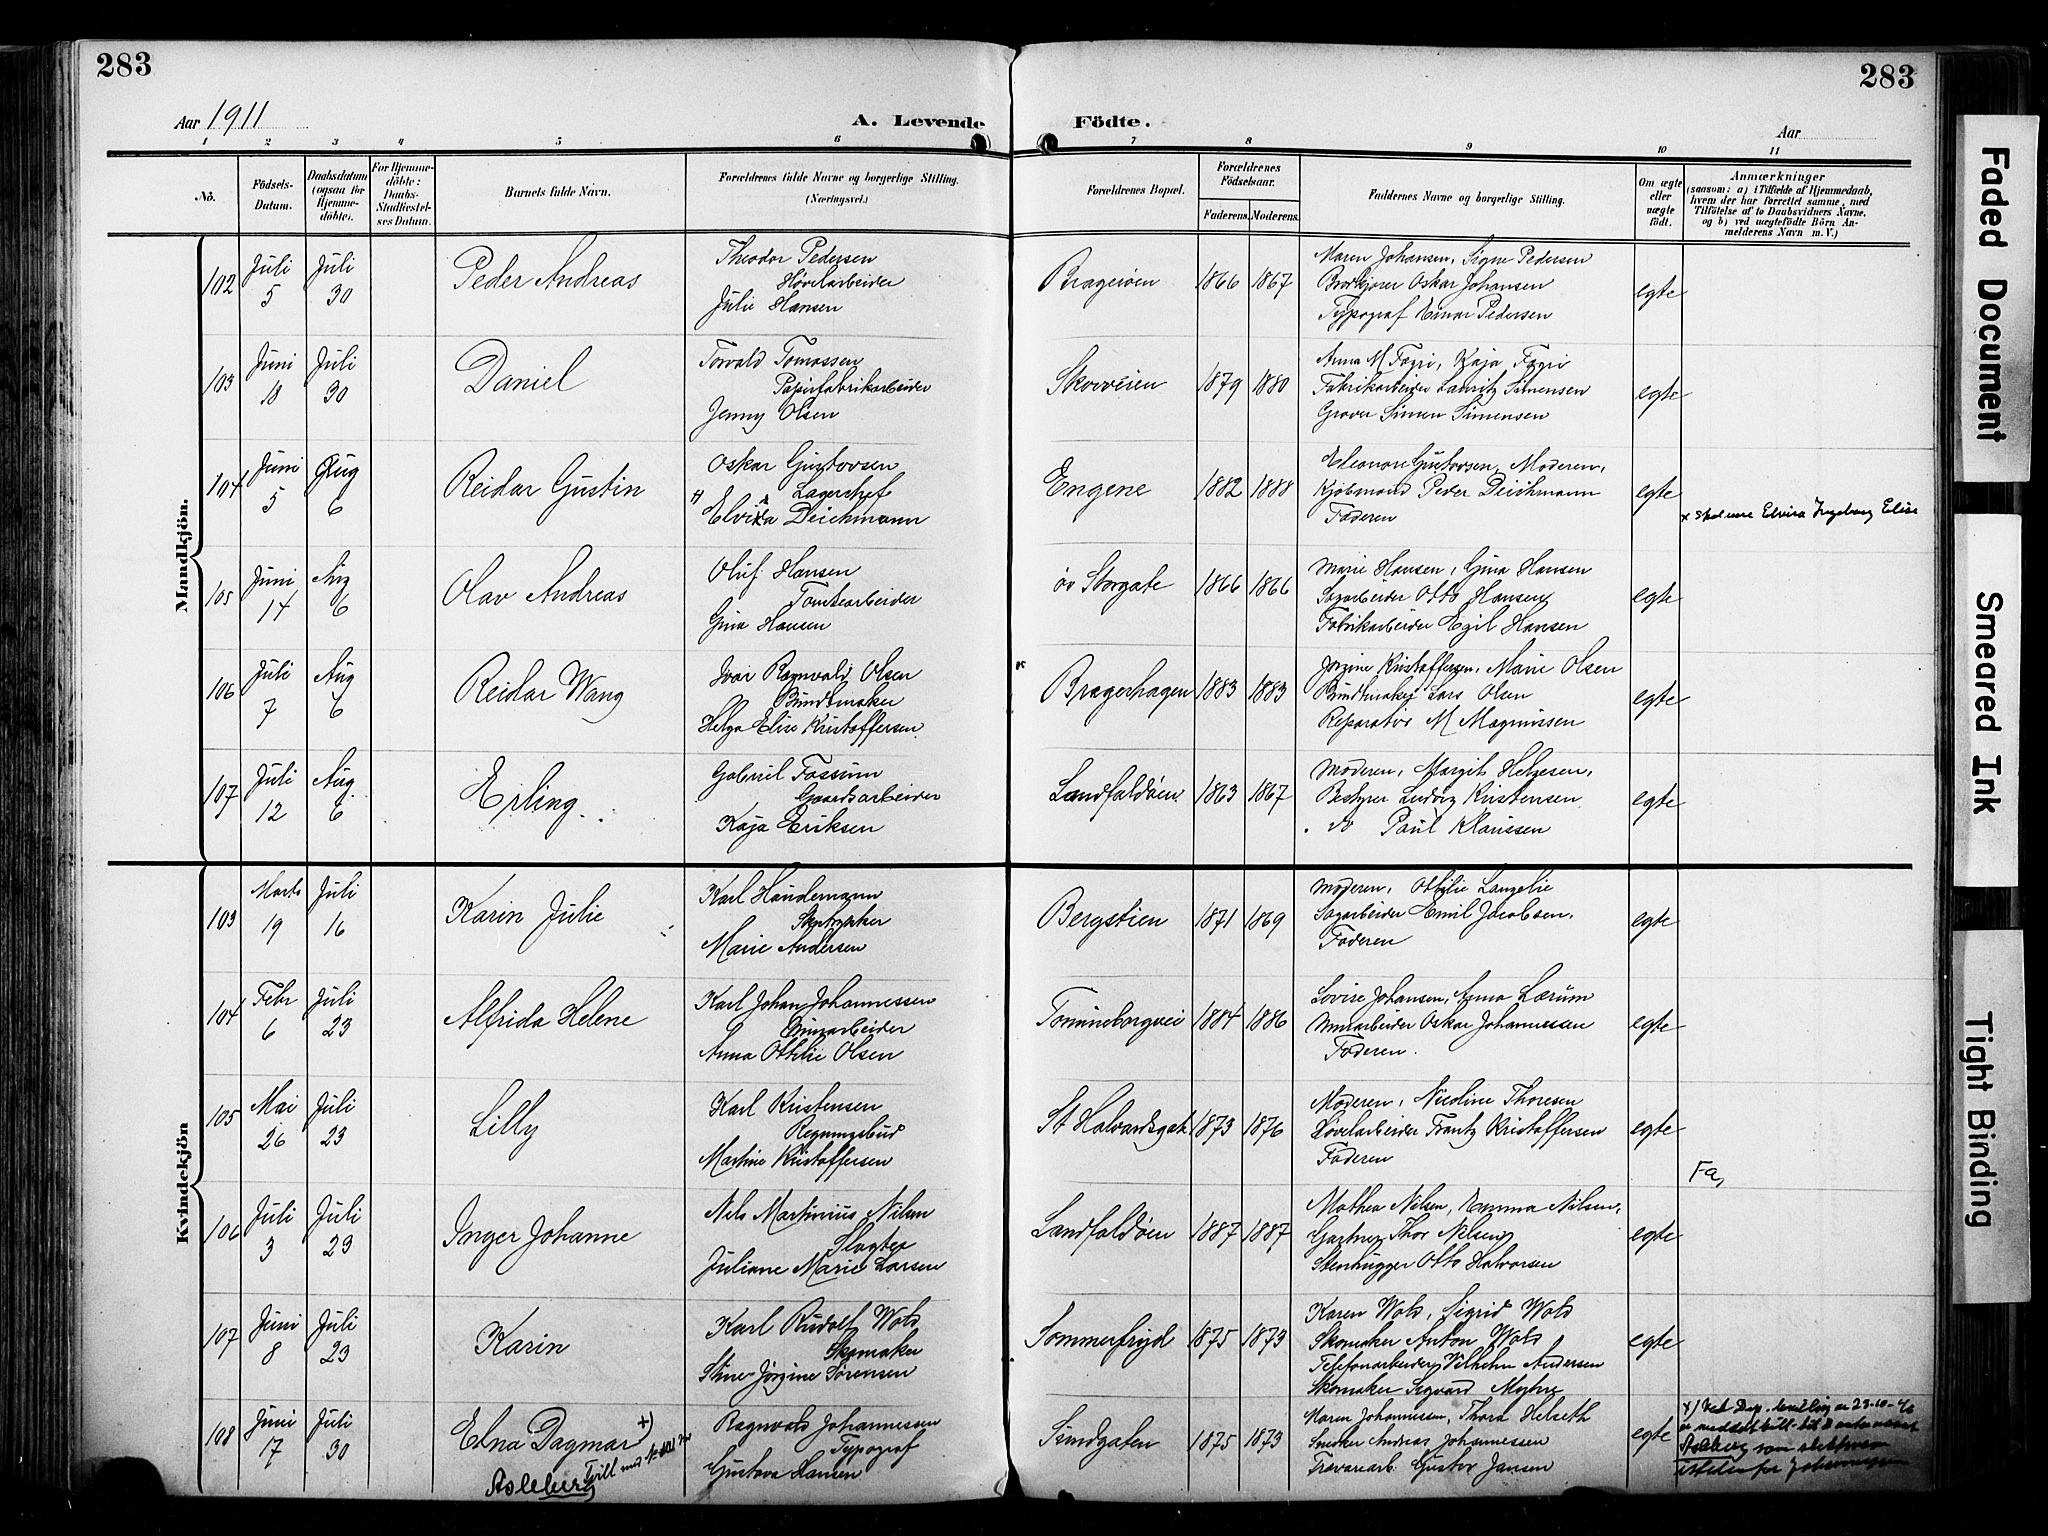 283
283
Aar 1911
A. Levende Födte.
Aar
1 2 3 4 5 6 7 8 9 10 11
No.
Födsels-
Datum.
Daabsdatum
(ogsaa for
Hjemme-
döbte).
For Hjemme-
döbte:
Daabs-
Stadfæstel-
ses Datum.
Barnets fulde Navn.
Forældrenes fulde Navne og borgerlige Stilling.
(Næringsvei.)
Forældrenes Bopæl.
Forældrenes
Födselsaar.
Faderens. Moderens.
Faddernes Navne og borgerlige Stilling.
Om ægte
eller
uægte
födt.
Anmærkninger
(saasom: a) i Tilfælde af Hjemmedaab,
hvem der har forrettet samme, med
Tilföielse af to Daabsvidners Navne,
og b) ved uægtefödte Börn An-
melderens Navn m. V.)
Mandkjön.
102 Juli 5 Juli 30 Peder Andreas
Theodor Pedersen
Høvelarbeider
Julie Hansen
Bragerøen 1866 1867
Maren Johansen, Signe Pedersen
Brødkjører Oskar Johansen
Typograf Einar Pedersen
egte
103 Juni 18 Juli 30 Daniel
Torvald Tomassen
Papirfabrikarbeider
Jenny Olsen
Skovveien 1879 1880
Anna M Fagri, Kaja Fagri
Fabrikarbeider Lauritz Simensen
Graver Simen Simensen
egte
104 Juni 5 Aug 6 Reidar Gustin
Oskar Gustavsen
Lagerchef
Elvira Deichmann
Engene 1882 1888
Eleonore Gustavsen, Moderen,
Kjøbmand Peder Deichmann
Faderen
egte
x skal være Elvira Ingeborg Elise
105 Juni 14 Aug 6 Olav Andreas
Oluf Hansen
Tomtearbeider
Gina Hansen
øv Storgate 1866 1866
Marie Hansen, Gina Hansen
Sagarbeider Otto Hansen,
Fabrikarbeider Egil Hansen
egte
106 Juli 7 Aug 6 Reidar Wang
Ivar Ragnvald Olsen
Bundtmaker
Helga Elise Kristoffersen
Bragerhagen 1883 1883
Jørgine Kristoffersen, Marie Olsen
Bundtmaker Lars Olsen
Reparatør M Magnussen
egte
107 Juli 12 Aug 6 Erling
Gabriel Fossum
Gaardsarbeider
Kaja Eriksen
Landfaldøen 1863 1867
Moderen, Margit Helgesen,
Bestyrer Ludvig Kristensen
do Paul Klaussen
egte
Kvindekjön
103 Marts 19 Juli 16 Karin Julie
Karl Handemann
Marie Andersen
Bergstien 1871 1869
Moderen, Ottilie Langelie
Sagarbeider Emil Jacobsen,
Faderen
egte
104 Febr 6 Juli 23 Alfrida Helene
Karl Johan Johannessen
Anna Ottilie Olsen
Tomineborgvei 1884 1886
Lovise Johansen, Anna Lærum
Murarbeider Oskar Johannessen
Faderen.
egte
105 Mai 26 Juli 23 Lilly
Karl Kristensen
Regningsbud
Martine Kristoffersen
St Halvardsgate 1873 1876
Moderen, Nicoline Thoresen
Høvelarbeider Frantz Kristoffersen
Faderen
egte
Fa,
106 Juli 3 Juli 23 Inger Johanne
Nels Martinius Nilsen
Slagter
Juliane Marie Larsen
Landfaldøen 1887 1887
Mathea Nilsen, Emma Nilsen,
Gartner Thor Nilsen,
Stenhugger Otto Halvorsen
egte
107 Juni 8 Juli 23 Karin
Karl Rudolf Wold
Skomaker
Stine Jørgine Sørensen
Sommerfryd 1875 1873
Karen Wold, Sigrid Wold
Skomaker Anton Wold
Telefonarbeider Vilhelm Andersen
Skomaker Sigvard Myhre
egte
108 Juni 17 Juli 30 Elna Dagmar +)
Asleberg
Ragnvald Johannessen
Typograf
Gustava Hansen
Sundgaten 1875 1873
Maren Johannessen, Thora Helseth
Snedker Andreas Johannessen
Travarearb. Gustav Jansen
egte
x) Ved 23-10-46
Aslberg som slektsnavn
istedenfor Johannessen
Faded Document
Smeared Ink
Tight Binding